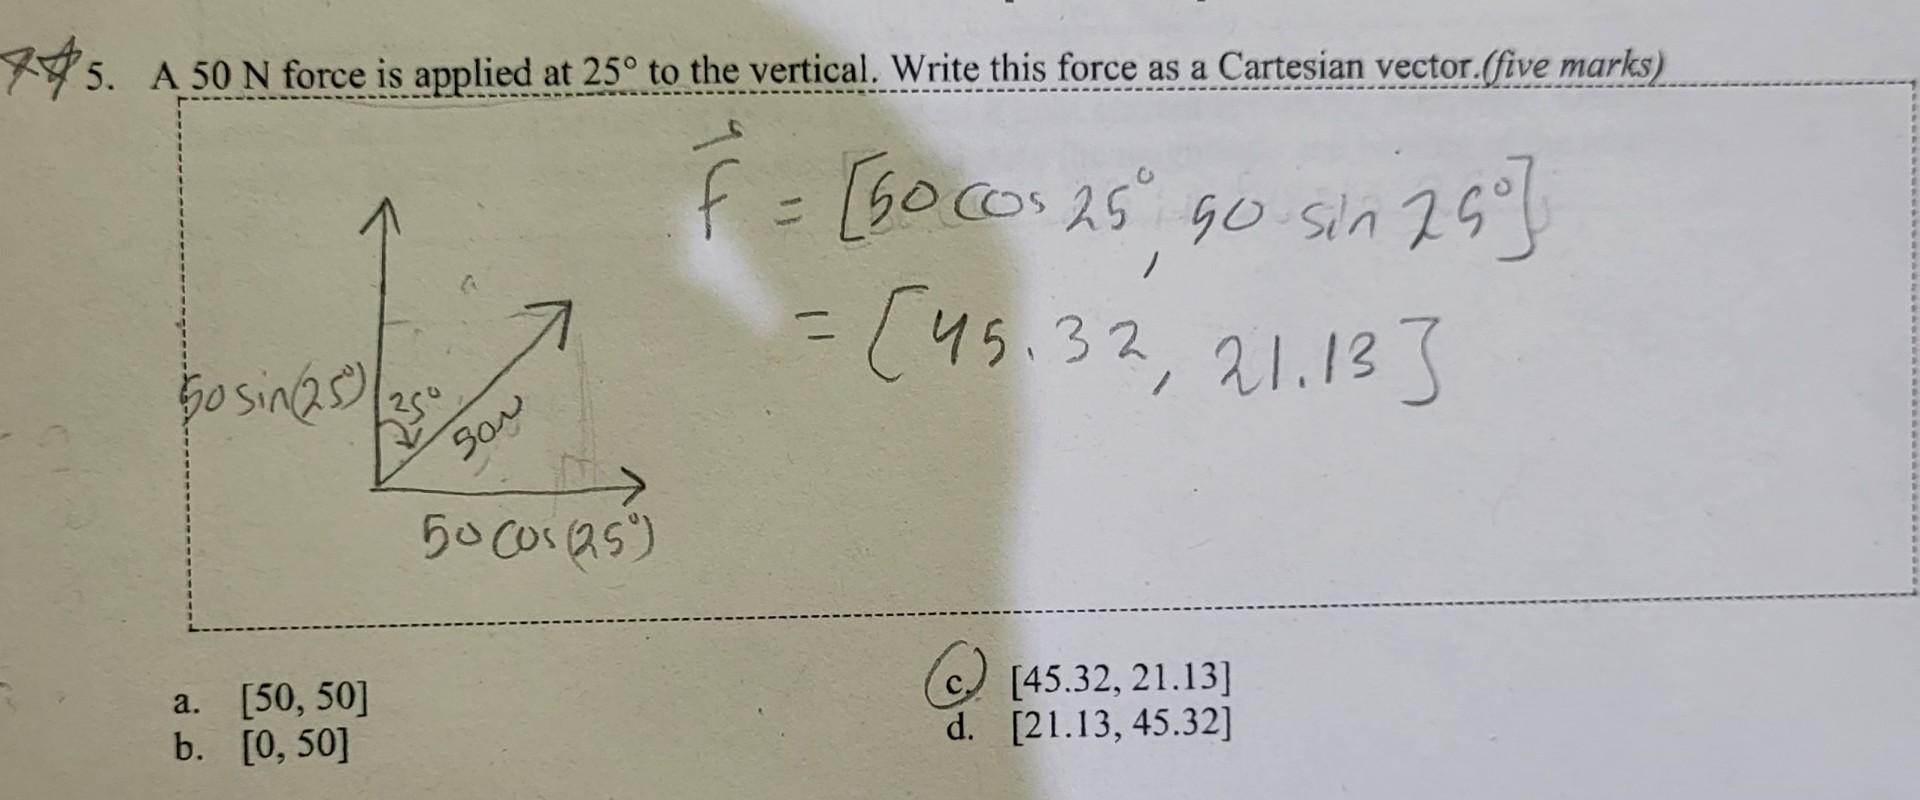 5. A 50 N force is applied at 25° to the vertical. Write this force as a Cartesian vector.(five marks)
f = [50 cos 25°, 50 sin 25°]
= [45.32, 21.13]
50 sin(25°)
25°
50N
50 cos(25°)
a. [50, 50]
b. [0, 50]
c. [45.32, 21.13]
d. [21.13, 45.32]